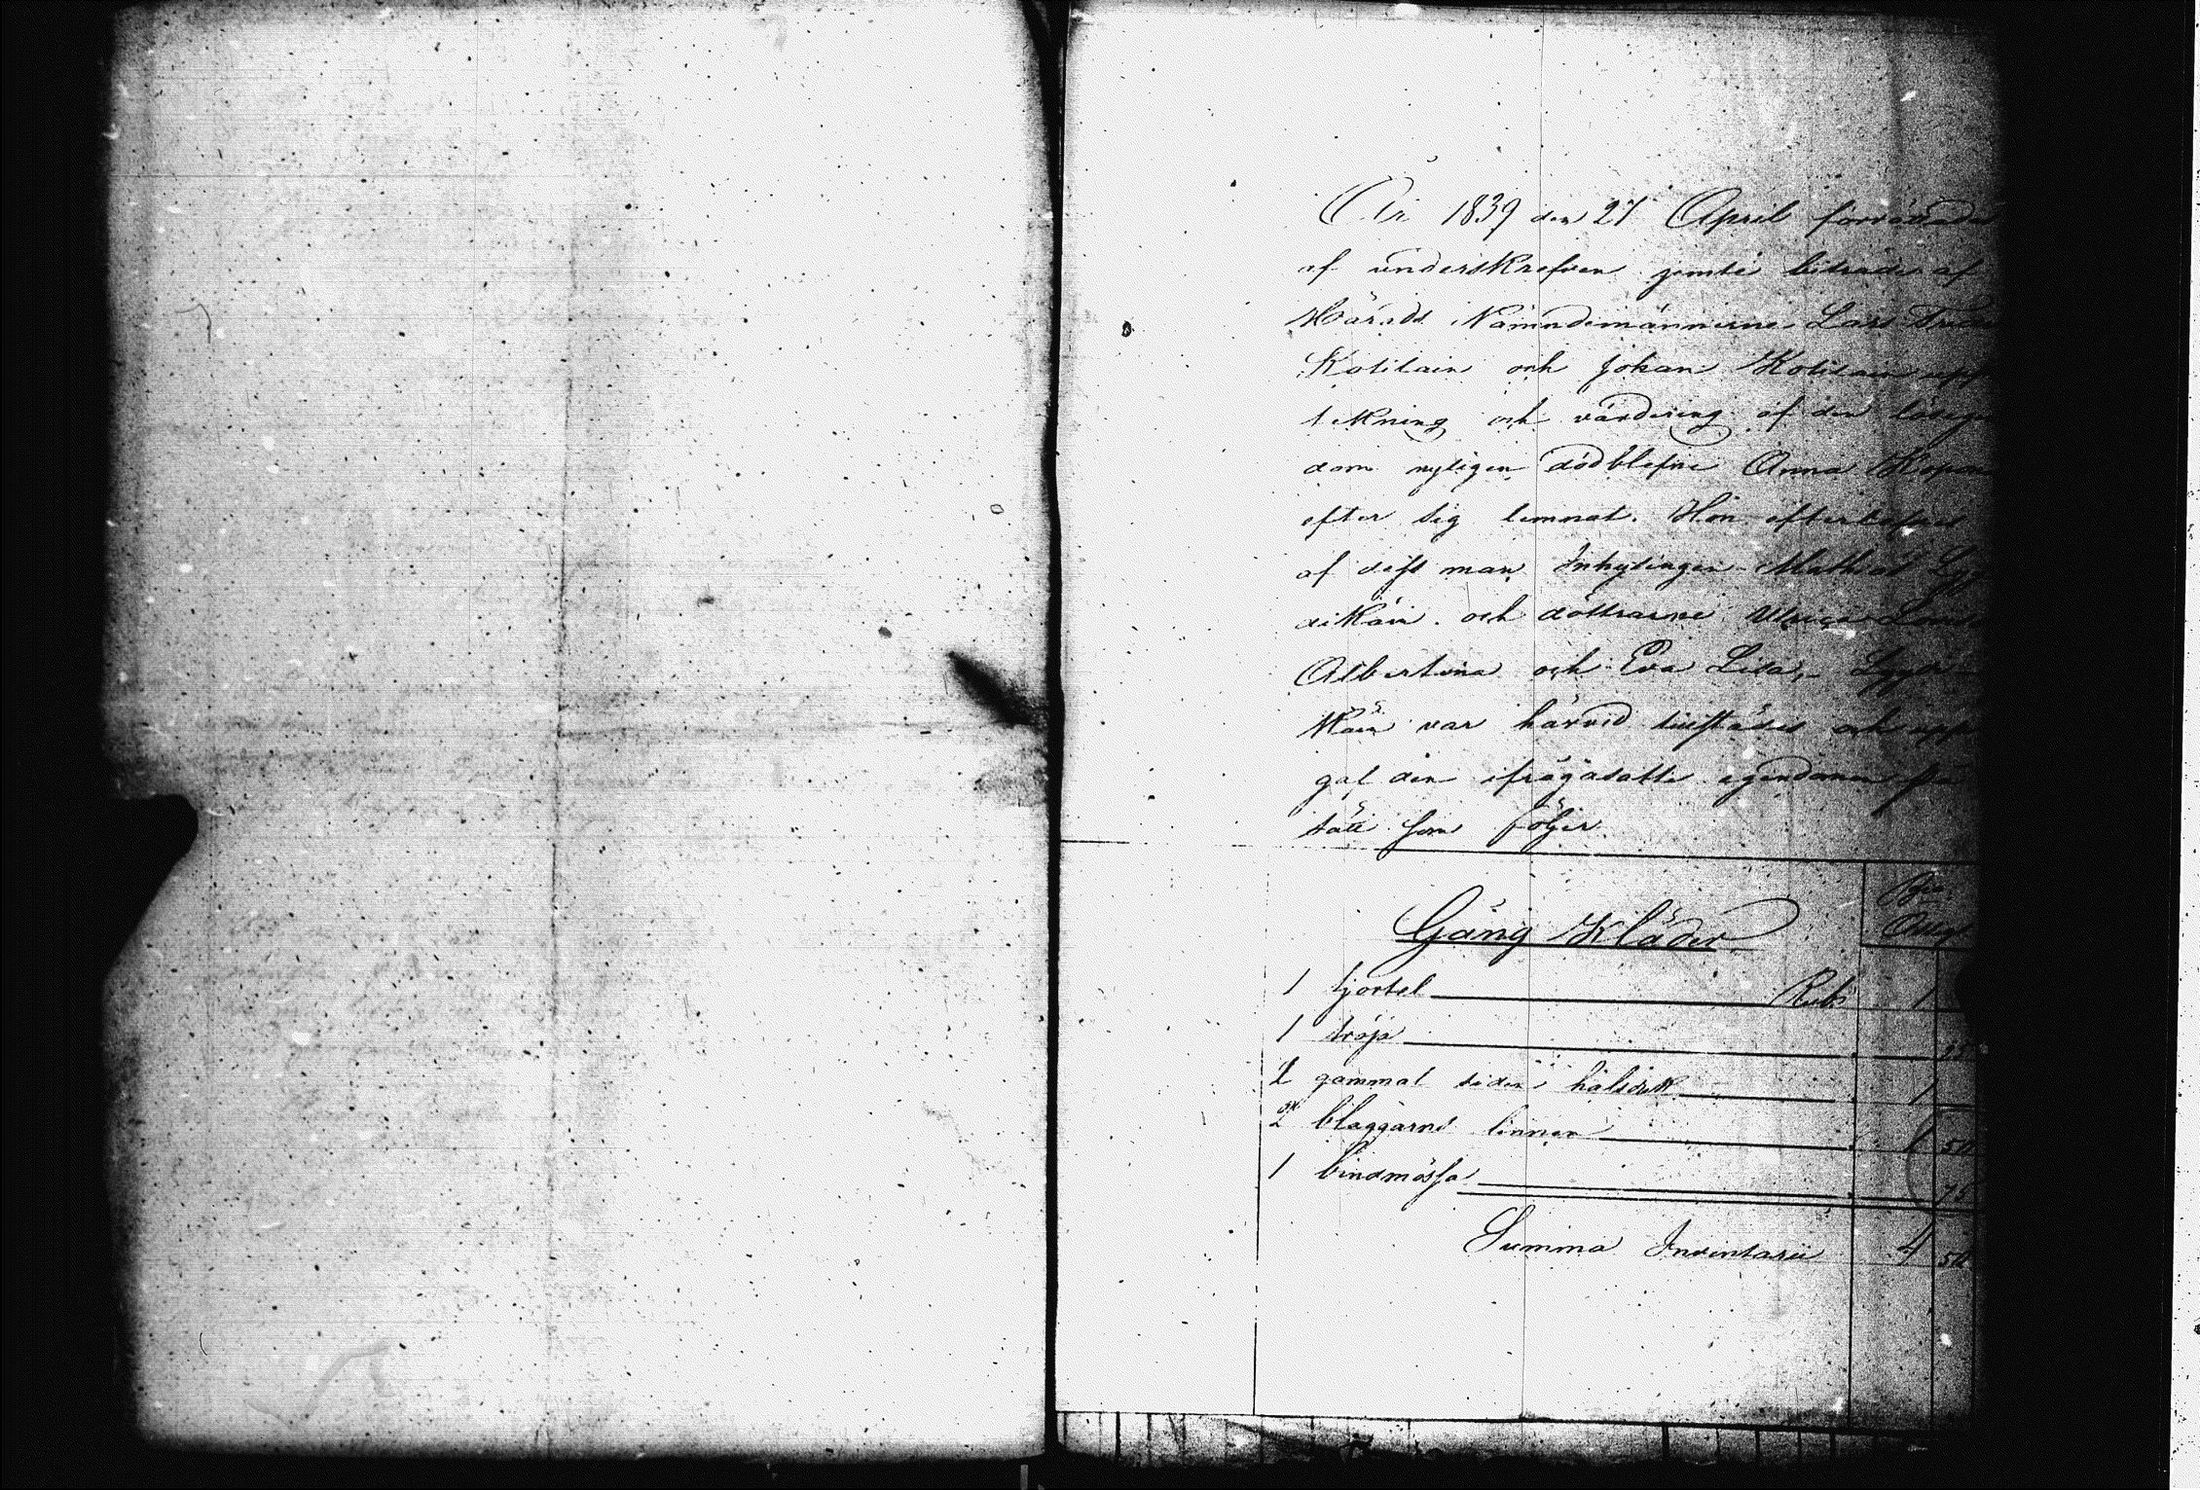 År 1839 den 27 April förrättade
af underskrefven jemte biträde af
Härads Nämndemännerne Lars
Kotilain och Johan Kotilain upp
tekning och värdering af den lösegen
dom nyligen dödblefne Anna
efter sig lemnat. Hon efterlefves
af dess man Inhysingen Mathias
dikäin och döttrarne Ulrica Lovisa
Albertina och Eva Lisa,
käin var härvid tillstädes och upp
gaf den ifrågasatte egendomen på
sätt som följer.
Gång Kläder
1 kjortel Rub. 1
1 tröja 25
1 gammal siden halsduk 1
2 st blaggarns linnen 1 50
1 bindmössa 75
Summa Inventarii 4 50